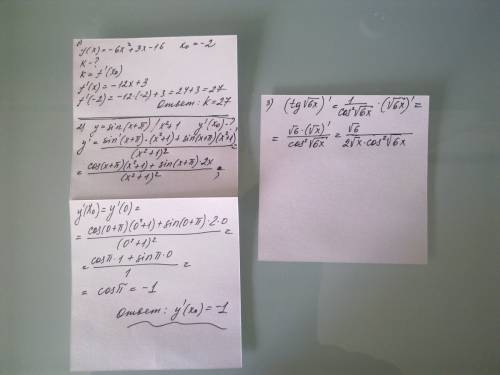 1)
f(x) = -6x² + 3x - 16   x₀ = -2
K - ?
K = f'(x₀)
f'(x) = -12x + 3
f'(-2) = -12·(-2) + 3 = 24 + 3 = 27
Ответ: K = 27
2) y = sin(x+π)/x²+1   y'(x₀) - ?
y' = (sin'(x+π)·(x²+1) + sin(x+π)(x²+1)')/(x²+1)² =
= (cos(x+π)(x²+1) + sin(x+π)·2x)/(x²+1)² ;
y'(x₀) = y'(0) =
= (cos(0+π)(0²+1) + sin(0+π)·2·0)/(0²+1)² =
= (cosπ·1 + sinπ·0)/1 =
= cosπ = -1
Ответ: y'(x₀) = -1
3) (tg√6x)' = 1/cos²√6x · (√6x)' =
= √6·(√x)'/cos²√6x = √6/2√x·cos²√6x